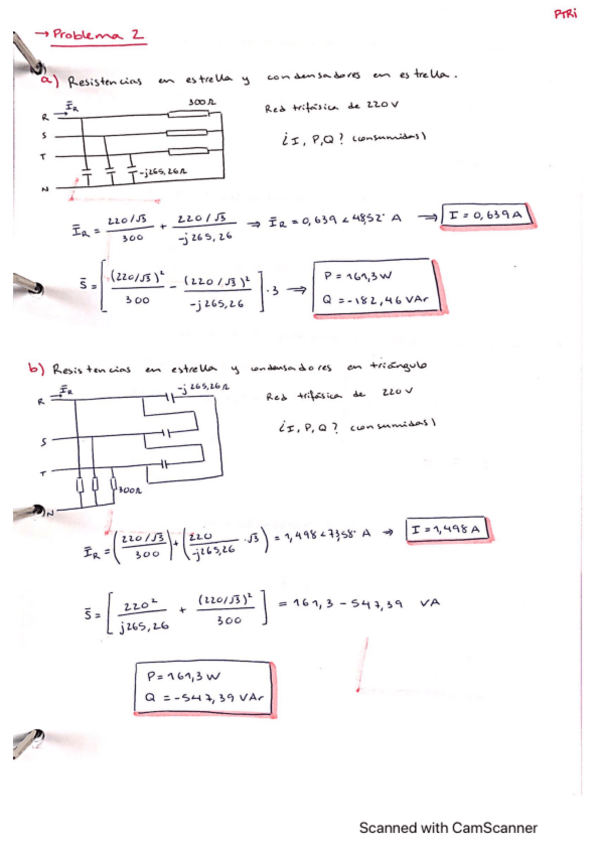 PTRi
→ Problema 2
a) Resistencias en estrella y condensadores en estrella.
R
I̅R
300Ω
Red trifásica de 220V
S
¿I, P, Q? (consumidas)
T
-j265,26Ω
N
I̅R = (220/√3)/300 + (220/√3)/(-j265,26) ⇒ I̅R = 0,639∠48,52° A → I = 0,639A
S̅ = [(220/√3)²/300 - (220/√3)²/(-j265,26)]·3 → P = 161,3W
Q = -182,46 VAr
b) Resistencias en estrella y condensadores en triángulo
I̅R
-j265,26Ω
R
Red trifásica de 220V
S
¿I, P, Q? (consumidas)
T
300Ω
N
I̅R = ((220/√3)/300) + (220/(-j265,26)·√3) = 1,498∠73,58° A → I = 1,498A
S̅ = [220²/(j265,26) + (220/√3)²/300] = 161,3 - 547,39 VA
P = 161,3W
Q = -547,39 VAr
Scanned with CamScanner